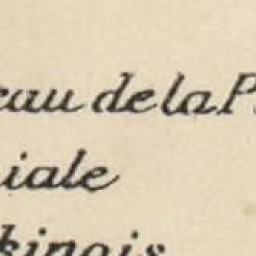 eau de la P
iale
kinois